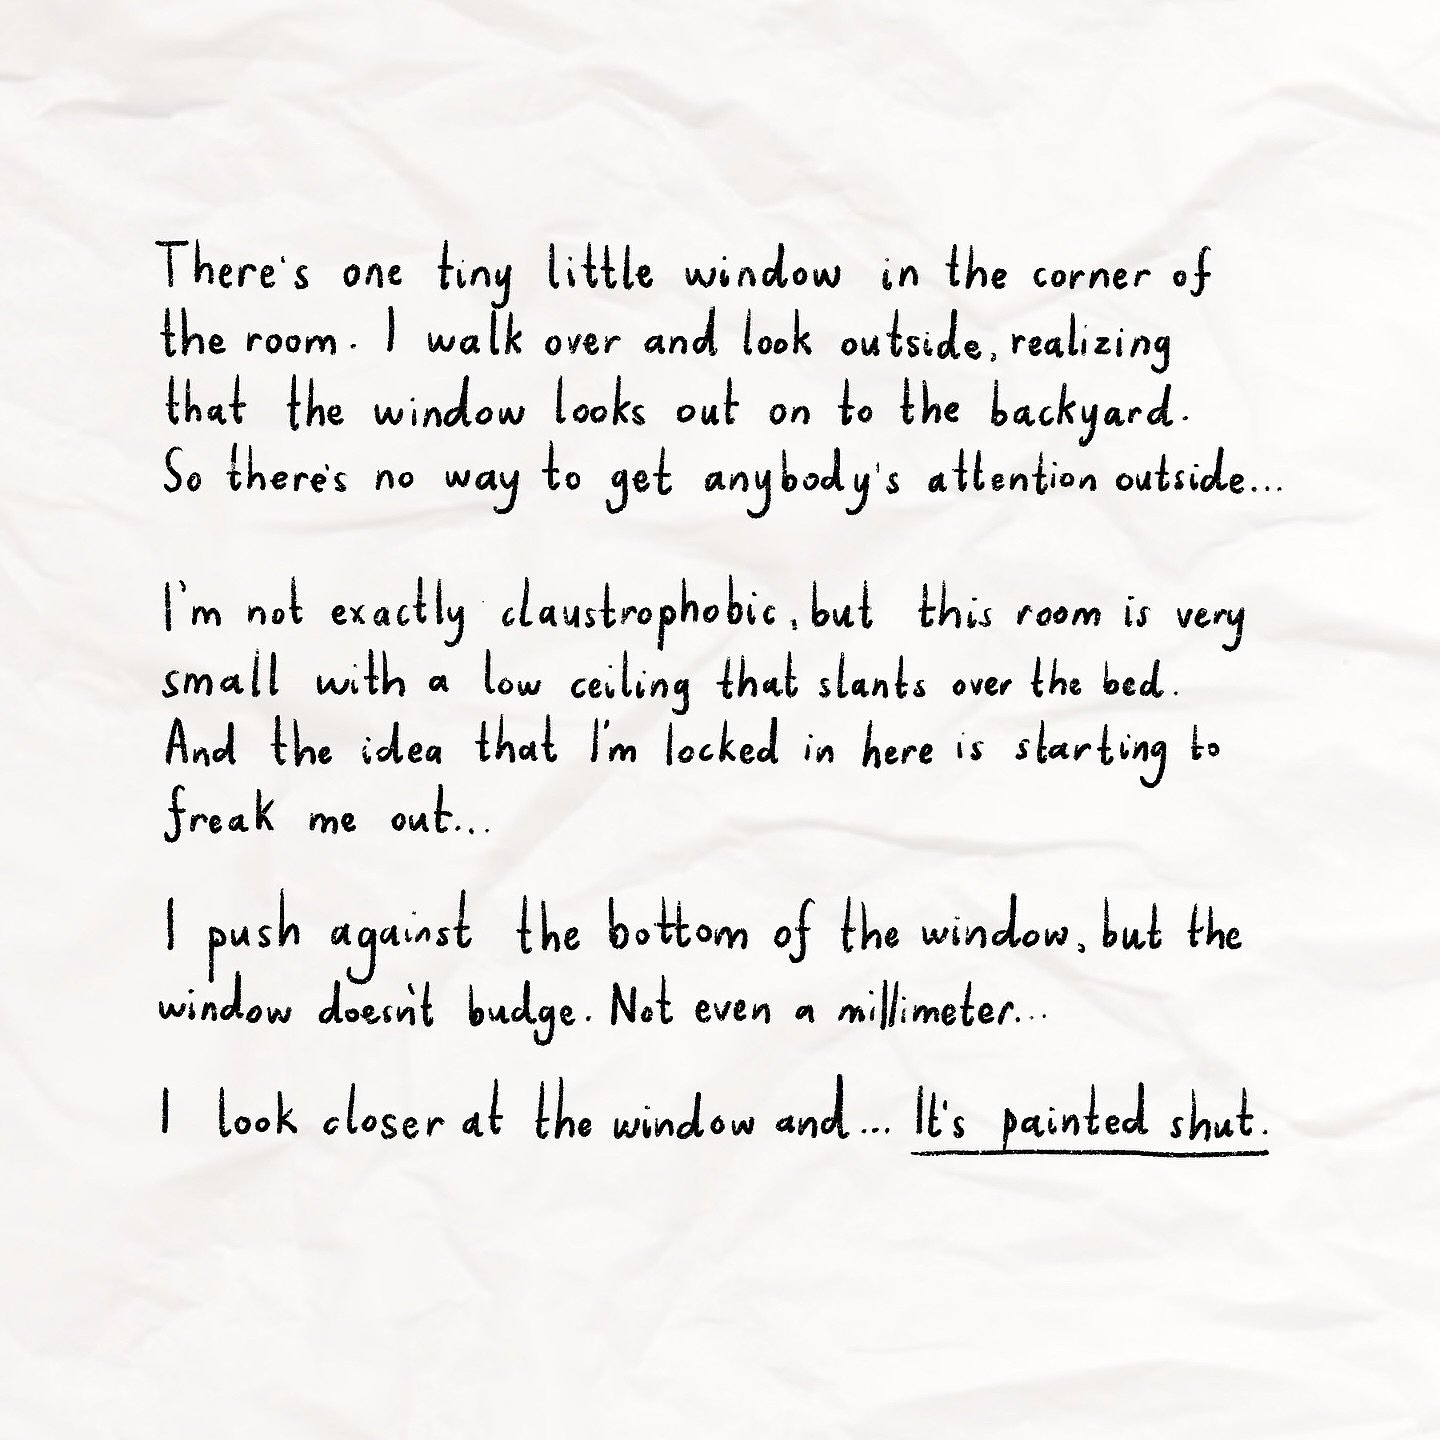 There's one tiny little window in the corner of
the room. I walk over and look outside, realizing
that the window looks out on to the backyard.
So there's no way to get anybody's attention outside...
I'm not exactly claustrophobic, but this room is very
small with a low ceiling that slants over the bed.
And the idea that I'm locked in here is starting to
freak me out...
I push against the bottom of the window, but the
window doesn't budge. Not even a millimeter...
I look closer at the window and... It's painted shut.